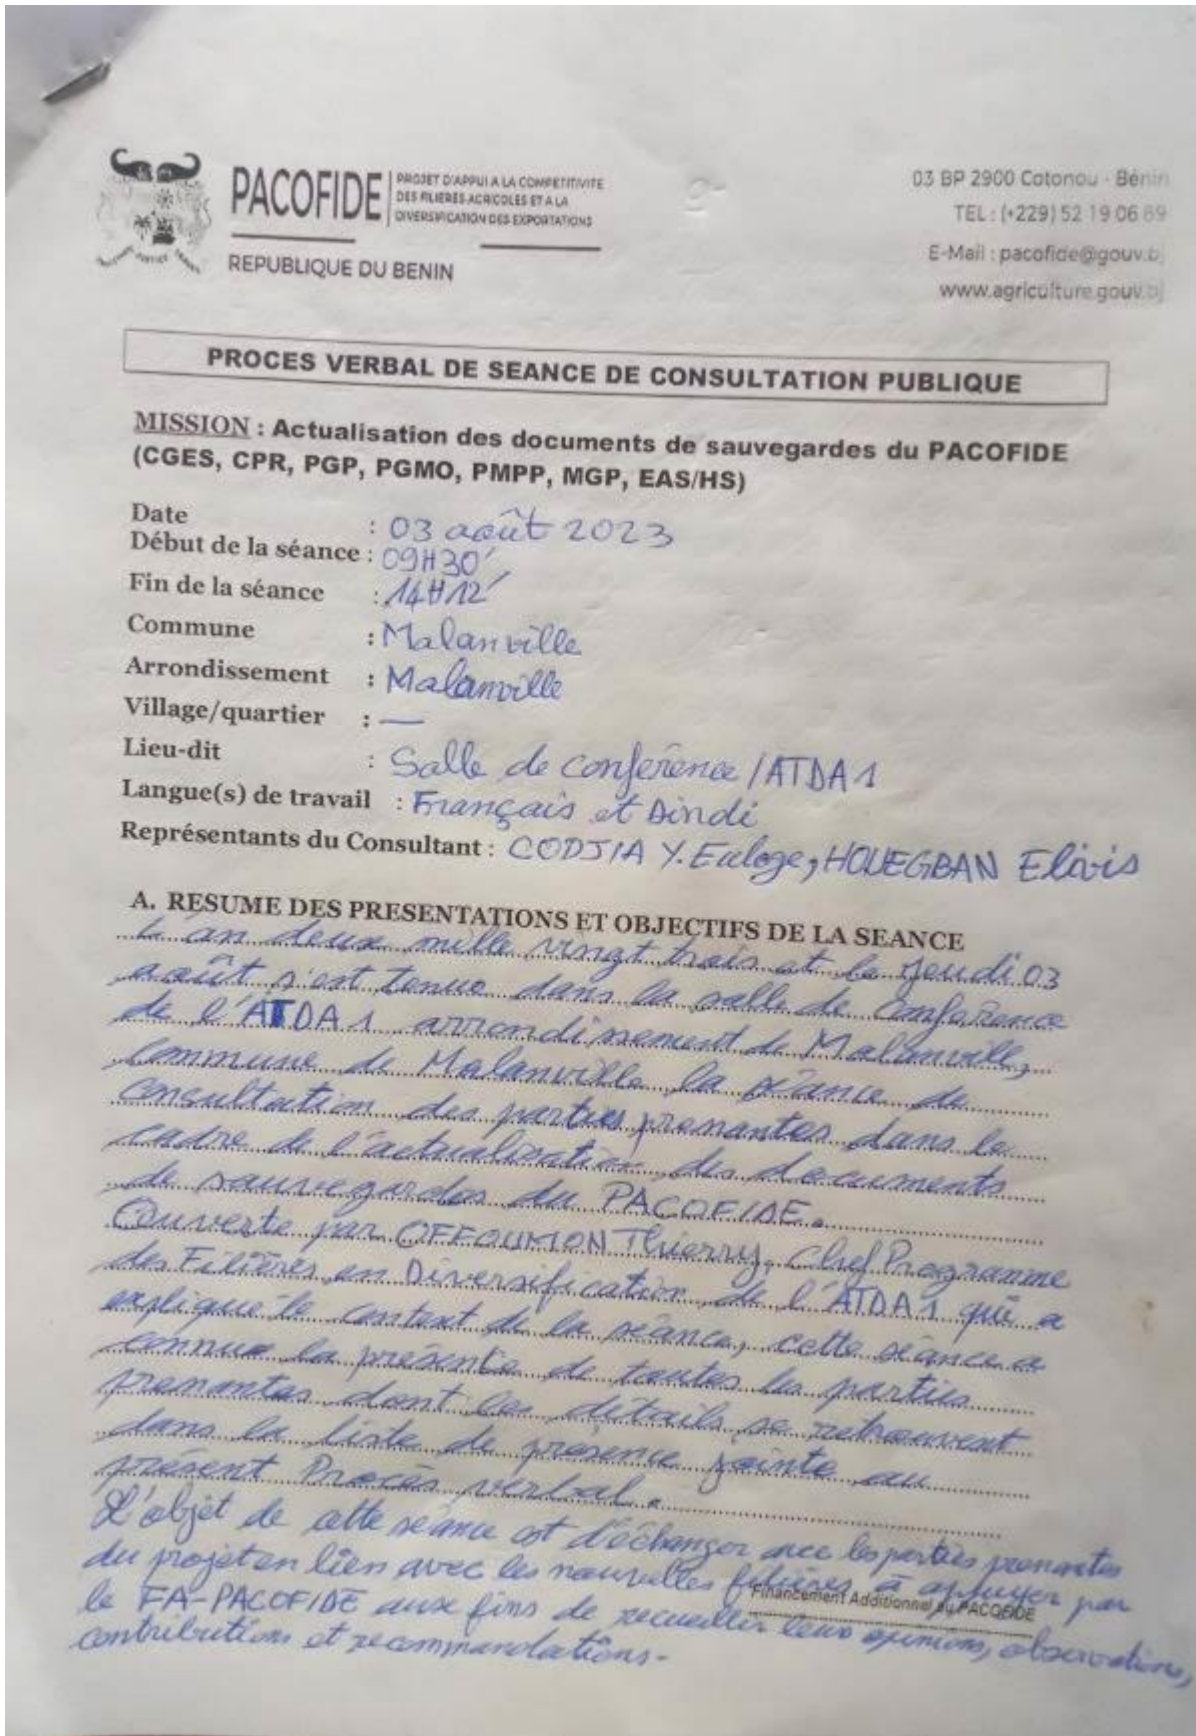 PACOFIDE
PROJET D'APPUI A LA COMPETITIVITE
DES FILIERES AGRICOLES ET A LA
DIVERSIFICATION DES EXPORTATIONS
REPUBLIQUE DU BENIN
03 BP 2900 Cotonou - Bénin
TEL : (+229) 52 19 06 69
E-Mail : pacofide@gouv.bj
www.agriculture.gouv.bj
PROCES VERBAL DE SEANCE DE CONSULTATION PUBLIQUE
MISSION : Actualisation des documents de sauvegardes du PACOFIDE
(CGES, CPR, PGP, PGMO, PMPP, MGP, EAS/HS)
Date : 03 août 2023
Début de la séance : 09H30'
Fin de la séance : 14H12'
Commune : Malanville
Arrondissement : Malanville
Village/quartier : —
Lieu-dit : Salle de conférence /ATDA1
Langue(s) de travail : Français et Dindi
Représentants du Consultant : CODJIA Y. Euloge, HOUEGBAN Elivis
A. RESUME DES PRESENTATIONS ET OBJECTIFS DE LA SEANCE
L'an deux mille vingt trois et le jeudi 03
août s'est tenue dans la salle de conférence
de l'ATDA1 arrondissement de Malanville,
commune de Malanville la séance de
consultation des parties prenantes dans le
cadre de l'actualisation des documents
de sauvegardes du PACOFIDE.
Couverte par OFFOUMON Thierry, Chef Programme
des Filières en Diversification de l'ATDA1 qui a
expliqué le context de la séance, cette séance a
connue la présence de toutes les parties
prenantes dont les détails se retrouvent
dans la liste de présence jointe au
présent Procès verbal.
L'objet de cette séance est d'échanger avec les parties prenantes
du projet en lien avec les nouvelles filières à appuyer par
Financement Additionnel au PACOFIDE
le FA-PACOFIDE aux fins de recueillir leurs opinions, observations,
contributions et recommandations.